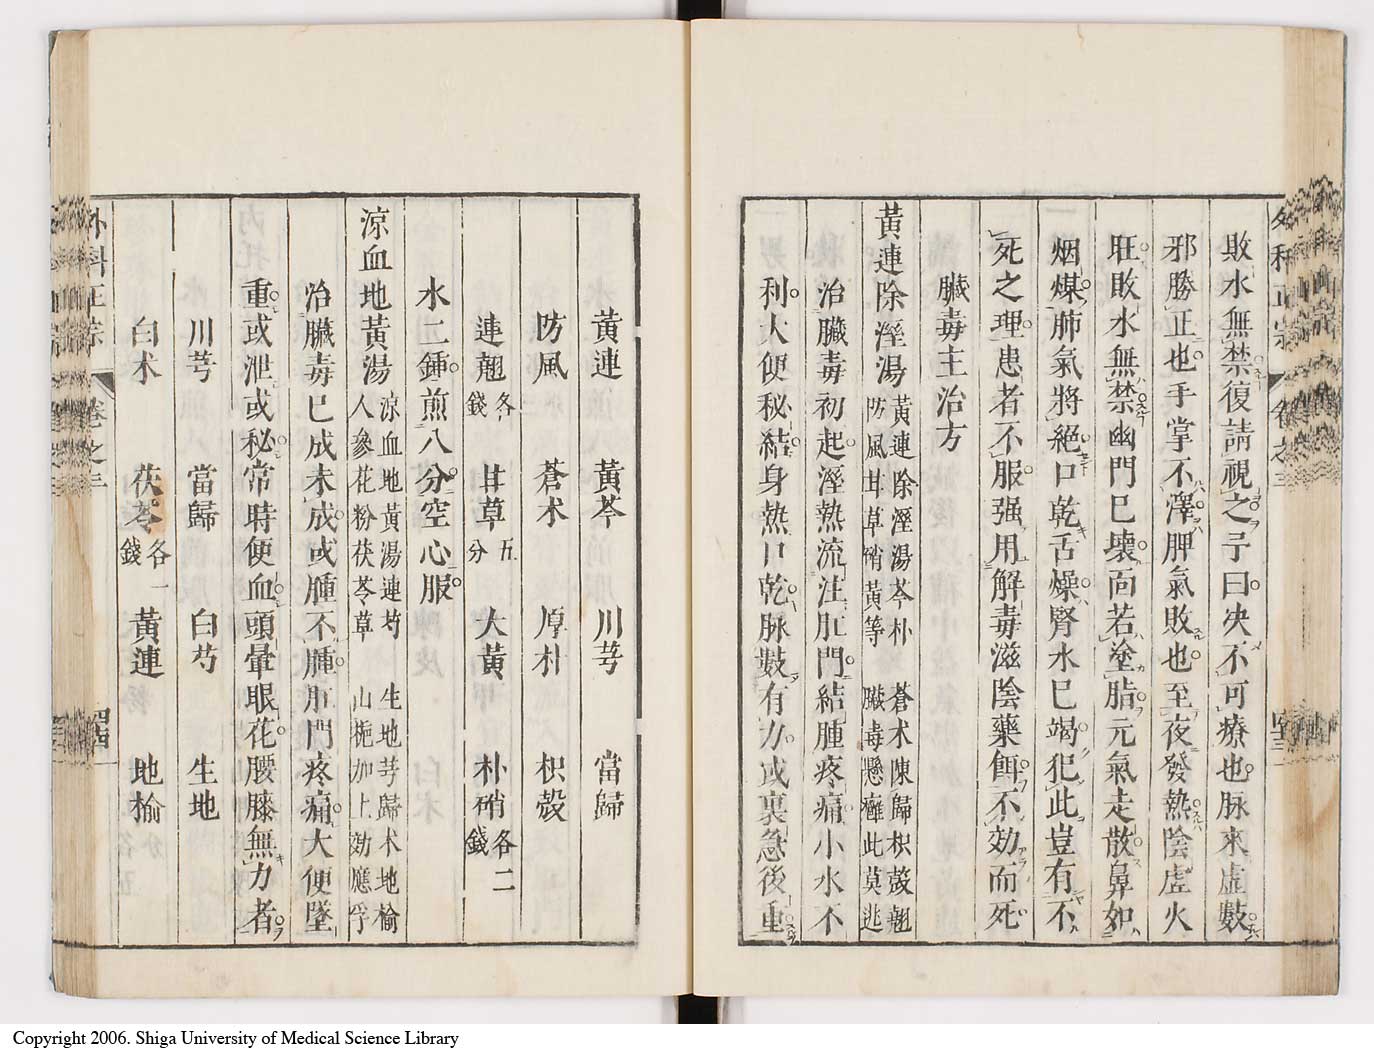 敗水無禁復請視之予曰决不可療也脉來虛數
邪勝正也手掌不澤脾氣敗也至夜發熱陰虛火
旺敗水無禁幽門已壞面若塗脂元氣走散鼻如
烟煤肺氣將絕口乾舌燥腎水已竭犯此豈有不
死之理患者不服强用解毒滋陰藥餌不効而死
臟毒主治方
黃連除溼湯
黃連除溼湯芩朴 蒼术陳歸枳蔆翹
防風甘草硝黃等 臟毒懸癰此莫逃
治臟毒初起溼熱流注肛門結腫疼痛小水不
利大便秘結身熱口乾脉數有力或裏急後重
外科正宗 卷之三 四十三
黃連 黃芩 川芎 當歸
防風 蒼术 厚朴 枳殼
連翹各錢 甘草五分 大黃 朴硝各二錢
水二鍾煎八分空心服
涼血地黃湯
涼血地黃湯連芍 生地芎歸术地榆
人參花粉茯苓草 山梔加上効應孚
治臟毒已成未成或腫不腫肛門疼痛大便墜
重或泄或秘常時便血頭暈眼花腰膝無力者
川芎 當歸 白芍 生地
白术 茯苓各一錢 黃連 地榆
外科正宗 卷之三 四十四
Copyright 2006. Shiga University of Medical Science Library